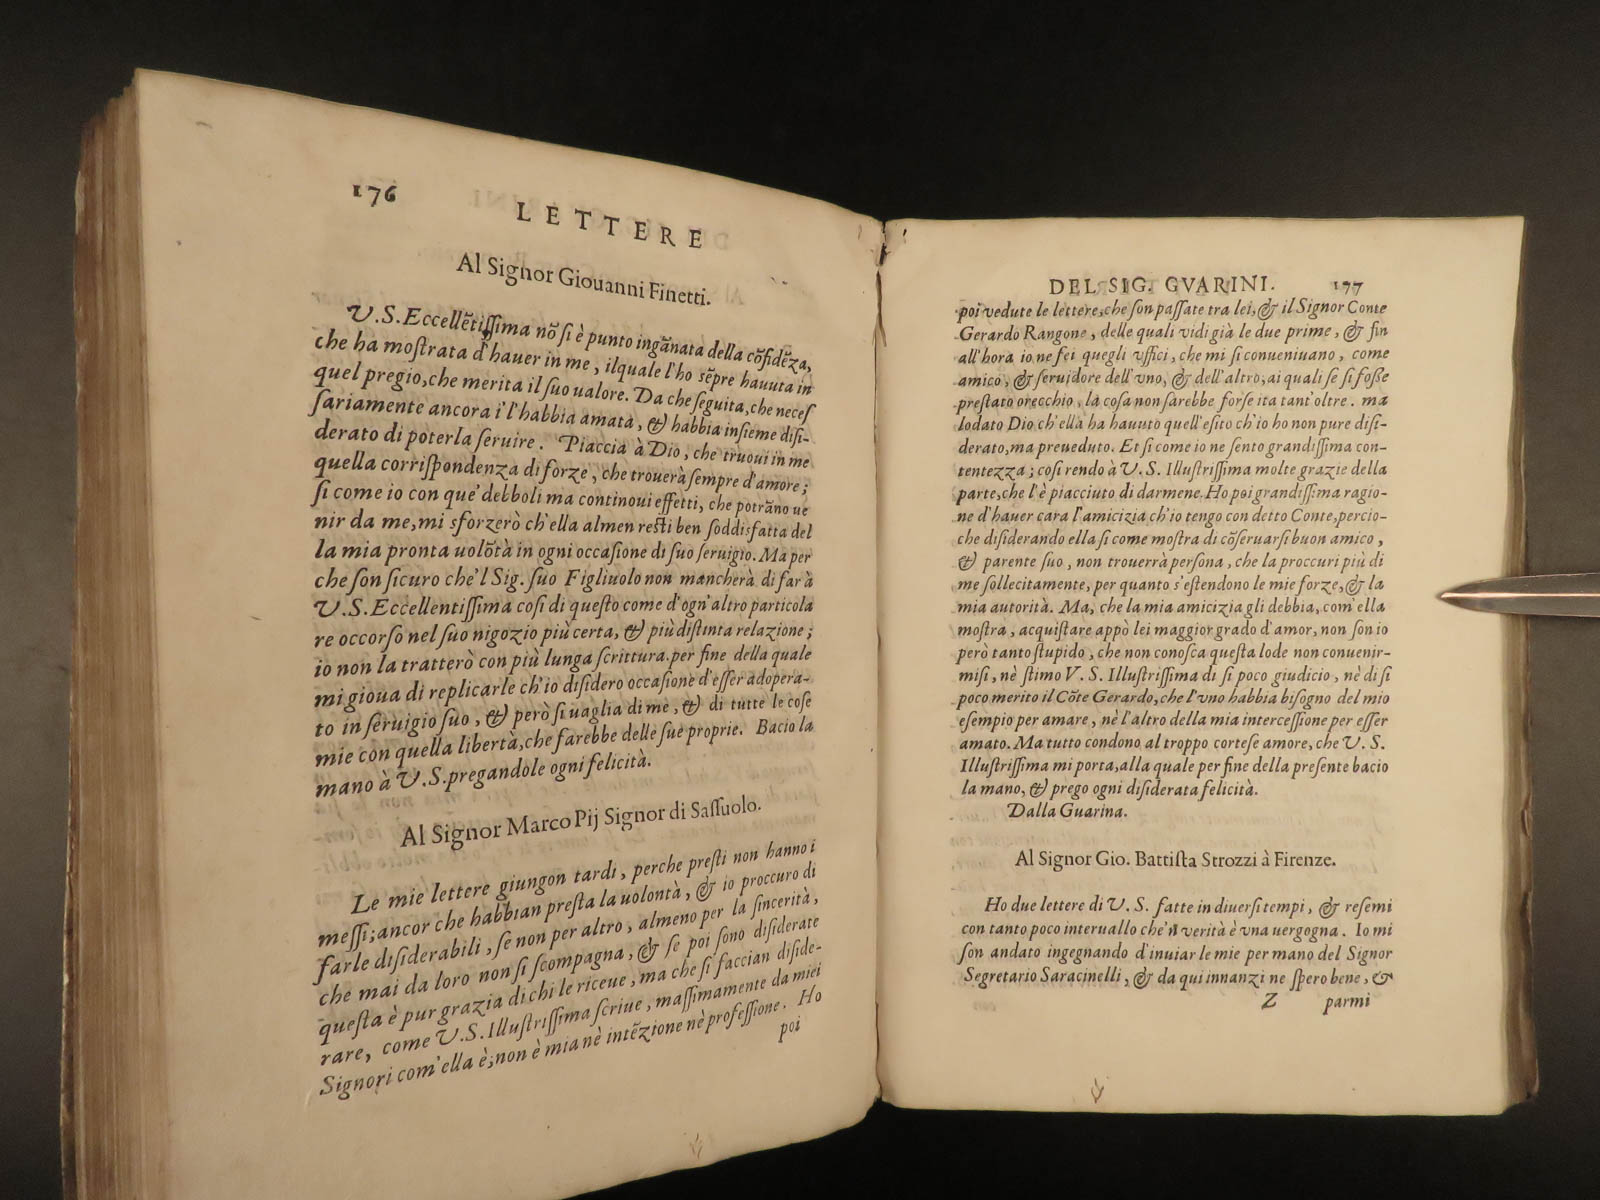 176
LETTERE
Al Signor Giouanni Finetti.
V.S.Eccellẽtiſſima nõ ſi è punto ingãnata della cõfidẽza,
che ha moſtrata d'hauer in me, ilquale l'ho sẽpre hauuta in
quel pregio,che merita il ſuo ualore. Da che ſeguita,che neceſ
ſariamente ancora i'l'habbia amata, & habbia inſieme diſi-
derato di poterla ſeruire. Piaccia à Dio, che truoui in me
quella corriſpondenza di forze, che trouerà ſempre d'amore;
ſi come io con que' debboli ma continoui effetti, che potrãno ue
nir da me,mi sforzerò ch'ella almen reſti ben ſoddisfatta del
la mia pronta uolõtà in ogni occaſione di ſuo ſeruigio. Ma per
che ſon ſicuro che'l Sig. ſuo Figliuolo non mancherà di far à
V.S.Eccellentiſſima coſi di queſto come d'ogn'altro particola
re occorſo nel ſuo nigozio più certa, & più diſtinta relazione;
io non la tratterò con più lunga ſcrittura.per fine della quale
mi gioua di replicarle ch'io diſidero occaſione d'eſſer adopera-
to in ſeruigio ſuo, & però ſi uaglia di me, & di tutte le coſe
mie con quella libertà,che farebbe delle ſue proprie. Bacio la
mano à V.S.pregandole ogni felicità.
Al Signor Marco Pij Signor di Saſſuolo.
Le mie lettere giungon tardi, perche preſti non hanno i
meſſi;ancor che habbian preſta la uolontà, & io proccuro di
farle diſiderabili, ſe non per altro, almeno per la ſincerità,
che mai da loro non ſi ſcompagna, & ſe poi ſono diſiderate
queſta è pur grazia di chi le riceue, ma che ſi faccian diſide-
rare, come V.S.Illuſtriſſima ſcriue, maſſimamente da miei
Signori com'ella è;non è mia nè intẽzione nè profeſſione. Ho
poi
DEL SIG. GVARINI. 177
poi vedute le lettere,che ſon paſſate tra lei,& il Signor Conte
Gerardo Rangone, delle quali vidi già le due prime, & fin
all'hora io ne fei quegli vffici, che mi ſi conueniuano, come
amico, & ſeruidore dell'vno, & dell'altro,ai quali ſe ſi foſſe
preſtato orecchio, la coſa non ſarebbe forſe ita tant'oltre. ma
lodato Dio ch'ella ha hauuto quell'eſito ch'io ho non pure diſi-
derato,ma preueduto. Et ſi come io ne ſento grandiſſima con-
tentezza; coſi rendo à V.S. Illuſtriſſima molte grazie della
parte,che l'è piacciuto di darmene.Ho poi grandiſſima ragio-
ne d'hauer cara l'amicizia ch'io tengo con detto Conte,percio-
che diſiderando ella ſi come moſtra di cõſeruarſi buon amico,
& parente ſuo, non trouerrà perſona, che la proccuri più di
me ſollecitamente, per quanto s'eſtendono le mie forze,& la
mia autorità. Ma, che la mia amicizia gli debbia, com'ella
moſtra, acquiſtare appò lei maggior grado d'amor, non ſon io
però tanto ſtupido, che non conoſca queſta lode non conuenir-
miſi, nè ſtimo V.S. Illuſtriſſima di ſi poco giudicio, nè di ſi
poco merito il Cõte Gerardo,che l'vno habbia biſogno del mio
eſempio per amare, nè l'altro della mia interceſſione per eſſer
amato. Ma tutto condono al troppo corteſe amore, che V.S.
Illuſtriſſima mi porta,alla quale per fine della preſente bacio
la mano, & prego ogni diſiderata felicità.
Dalla Guarina.
Al Signor Gio. Battiſta Strozzi à Firenze.
Ho due lettere di V.S. fatte in diuerſi tempi, & reſemi
con tanto poco interuallo che'n verità è vna uergogna. Io mi
ſon andato ingegnando d'inuiar le mie per mano del Signor
Segretario Saracinelli, & da qui innanzi ne ſpero bene, &
Z parmi